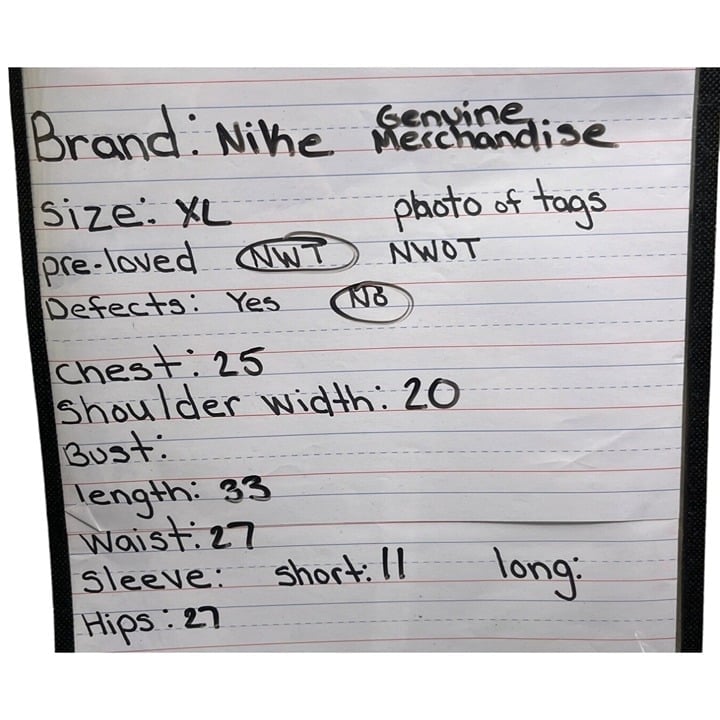 Brand: Nike Genuine Merchandise
Size: XL photo of tags
pre-loved NWT NWOT
Defects: Yes No
Chest: 25
Shoulder width: 20
Bust:
length: 33
Waist: 27
Sleeve: Short: 11 long:
Hips: 27